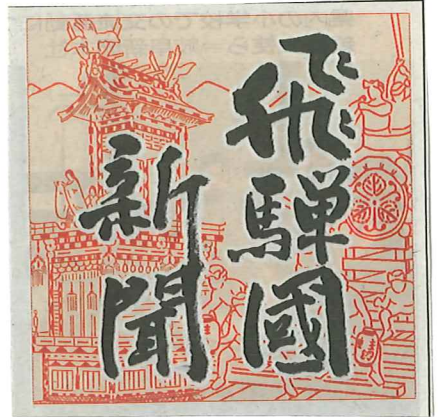 飛驒國
新聞